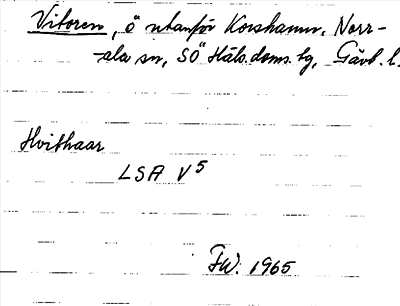 Vitoren, ö utanför Korshamn, Norr-
ala sn, SÖ Häls. doms. lg, Gävl. l.
Hvithaar
LSA V5
FW. 1965